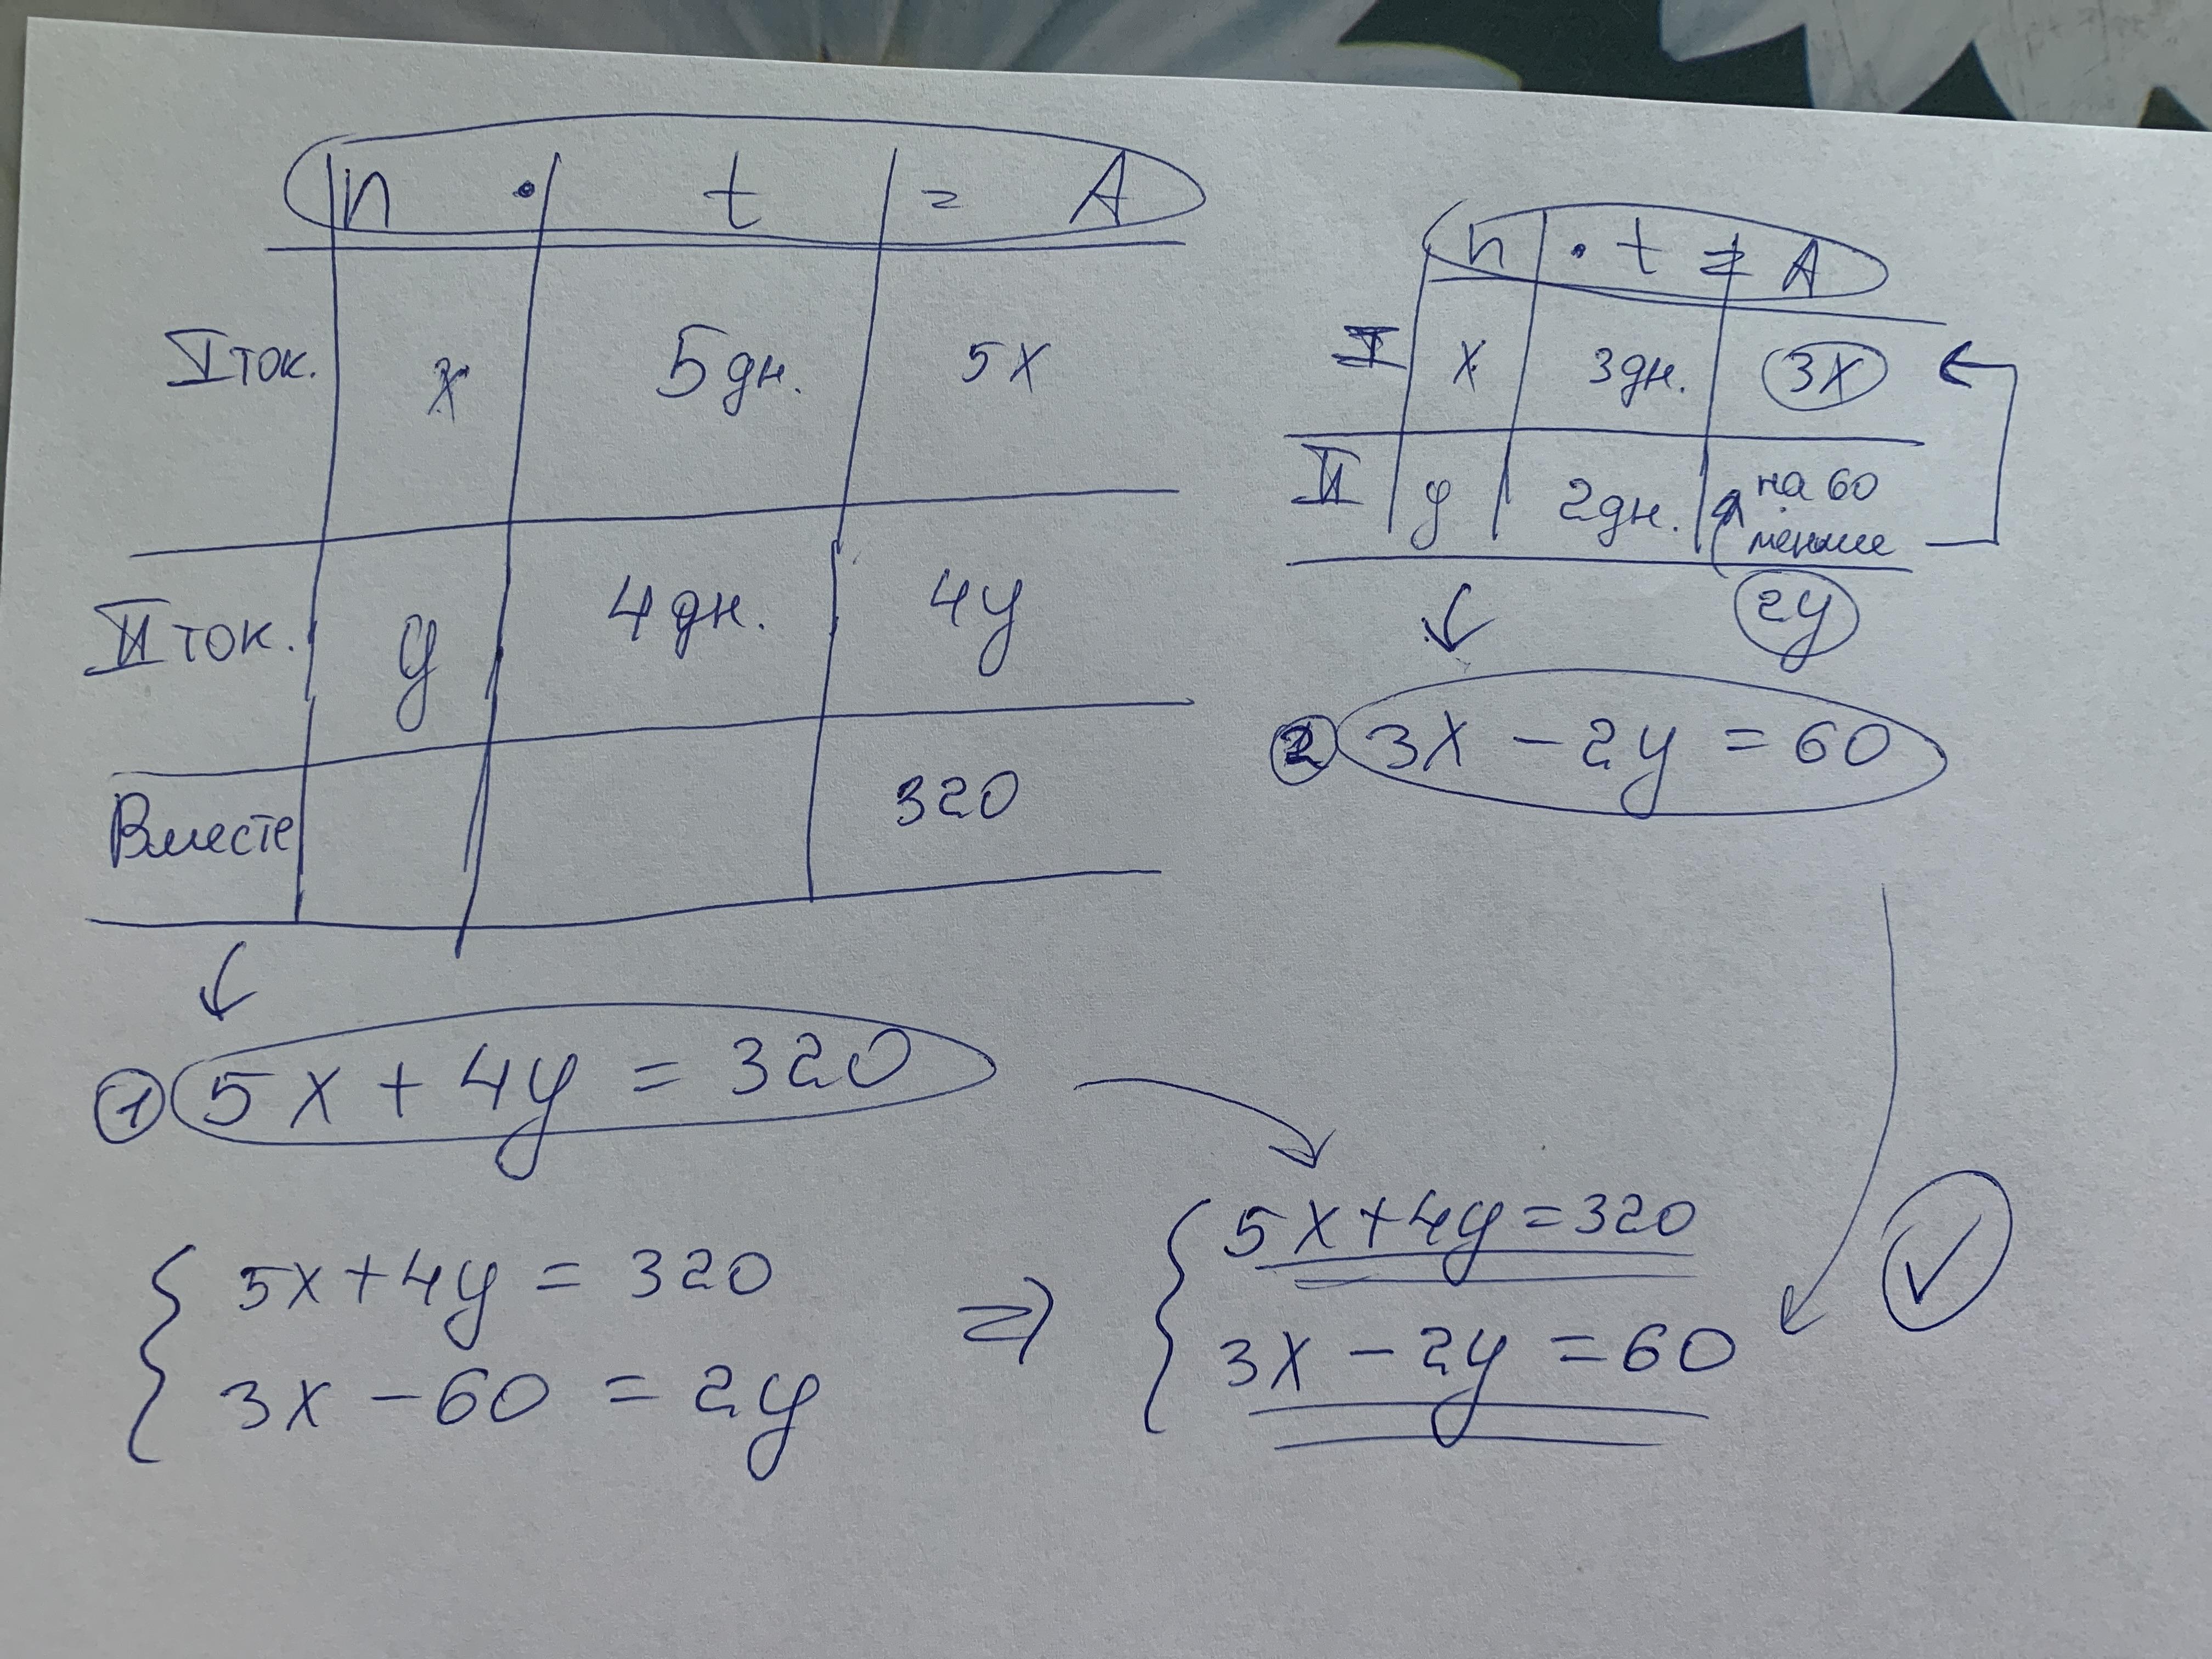 n · t = A
I ток. x 5 дн. 5x
II ток. y 4 дн. 4y
Вместе 320
① 5x + 4y = 320
n · t = A
I x 3 дн. 3x
II y 2 дн. на 60
меньше
2y
② 3x - 2y = 60
{ 5x + 4y = 320
3x - 60 = 2y
⇒ { 5x + 4y = 320
3x - 2y = 60 ✓